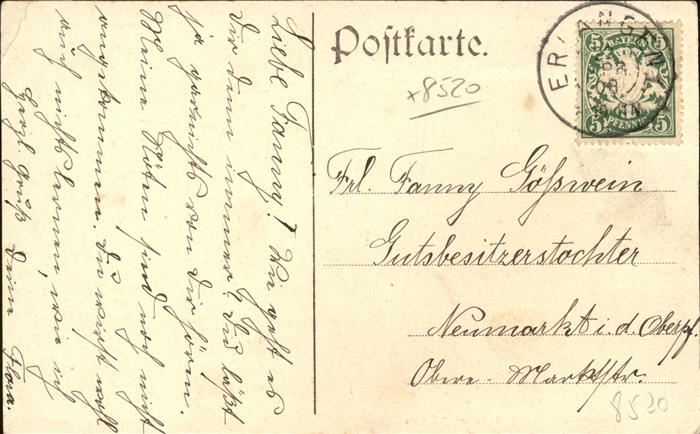 Postkarte.
×8520
ERLANGEN 1
5 BAYERN 5
5 PFENNIG 5
Frl. Fanny Gößwein
Gutsbesitzerstochter
Neumarkt i. d. Oberpf.
Obere Marktstr.
8520
Liebe Fanny! Wie geht es
Dir denn immer? Du läßt
ja garnichts von Dir hören.
Meine Noten sind noch nicht
angekommen. Du wirst wohl
auch nichts lernen, wie ich
Herzl. Gruß Deine Flora.